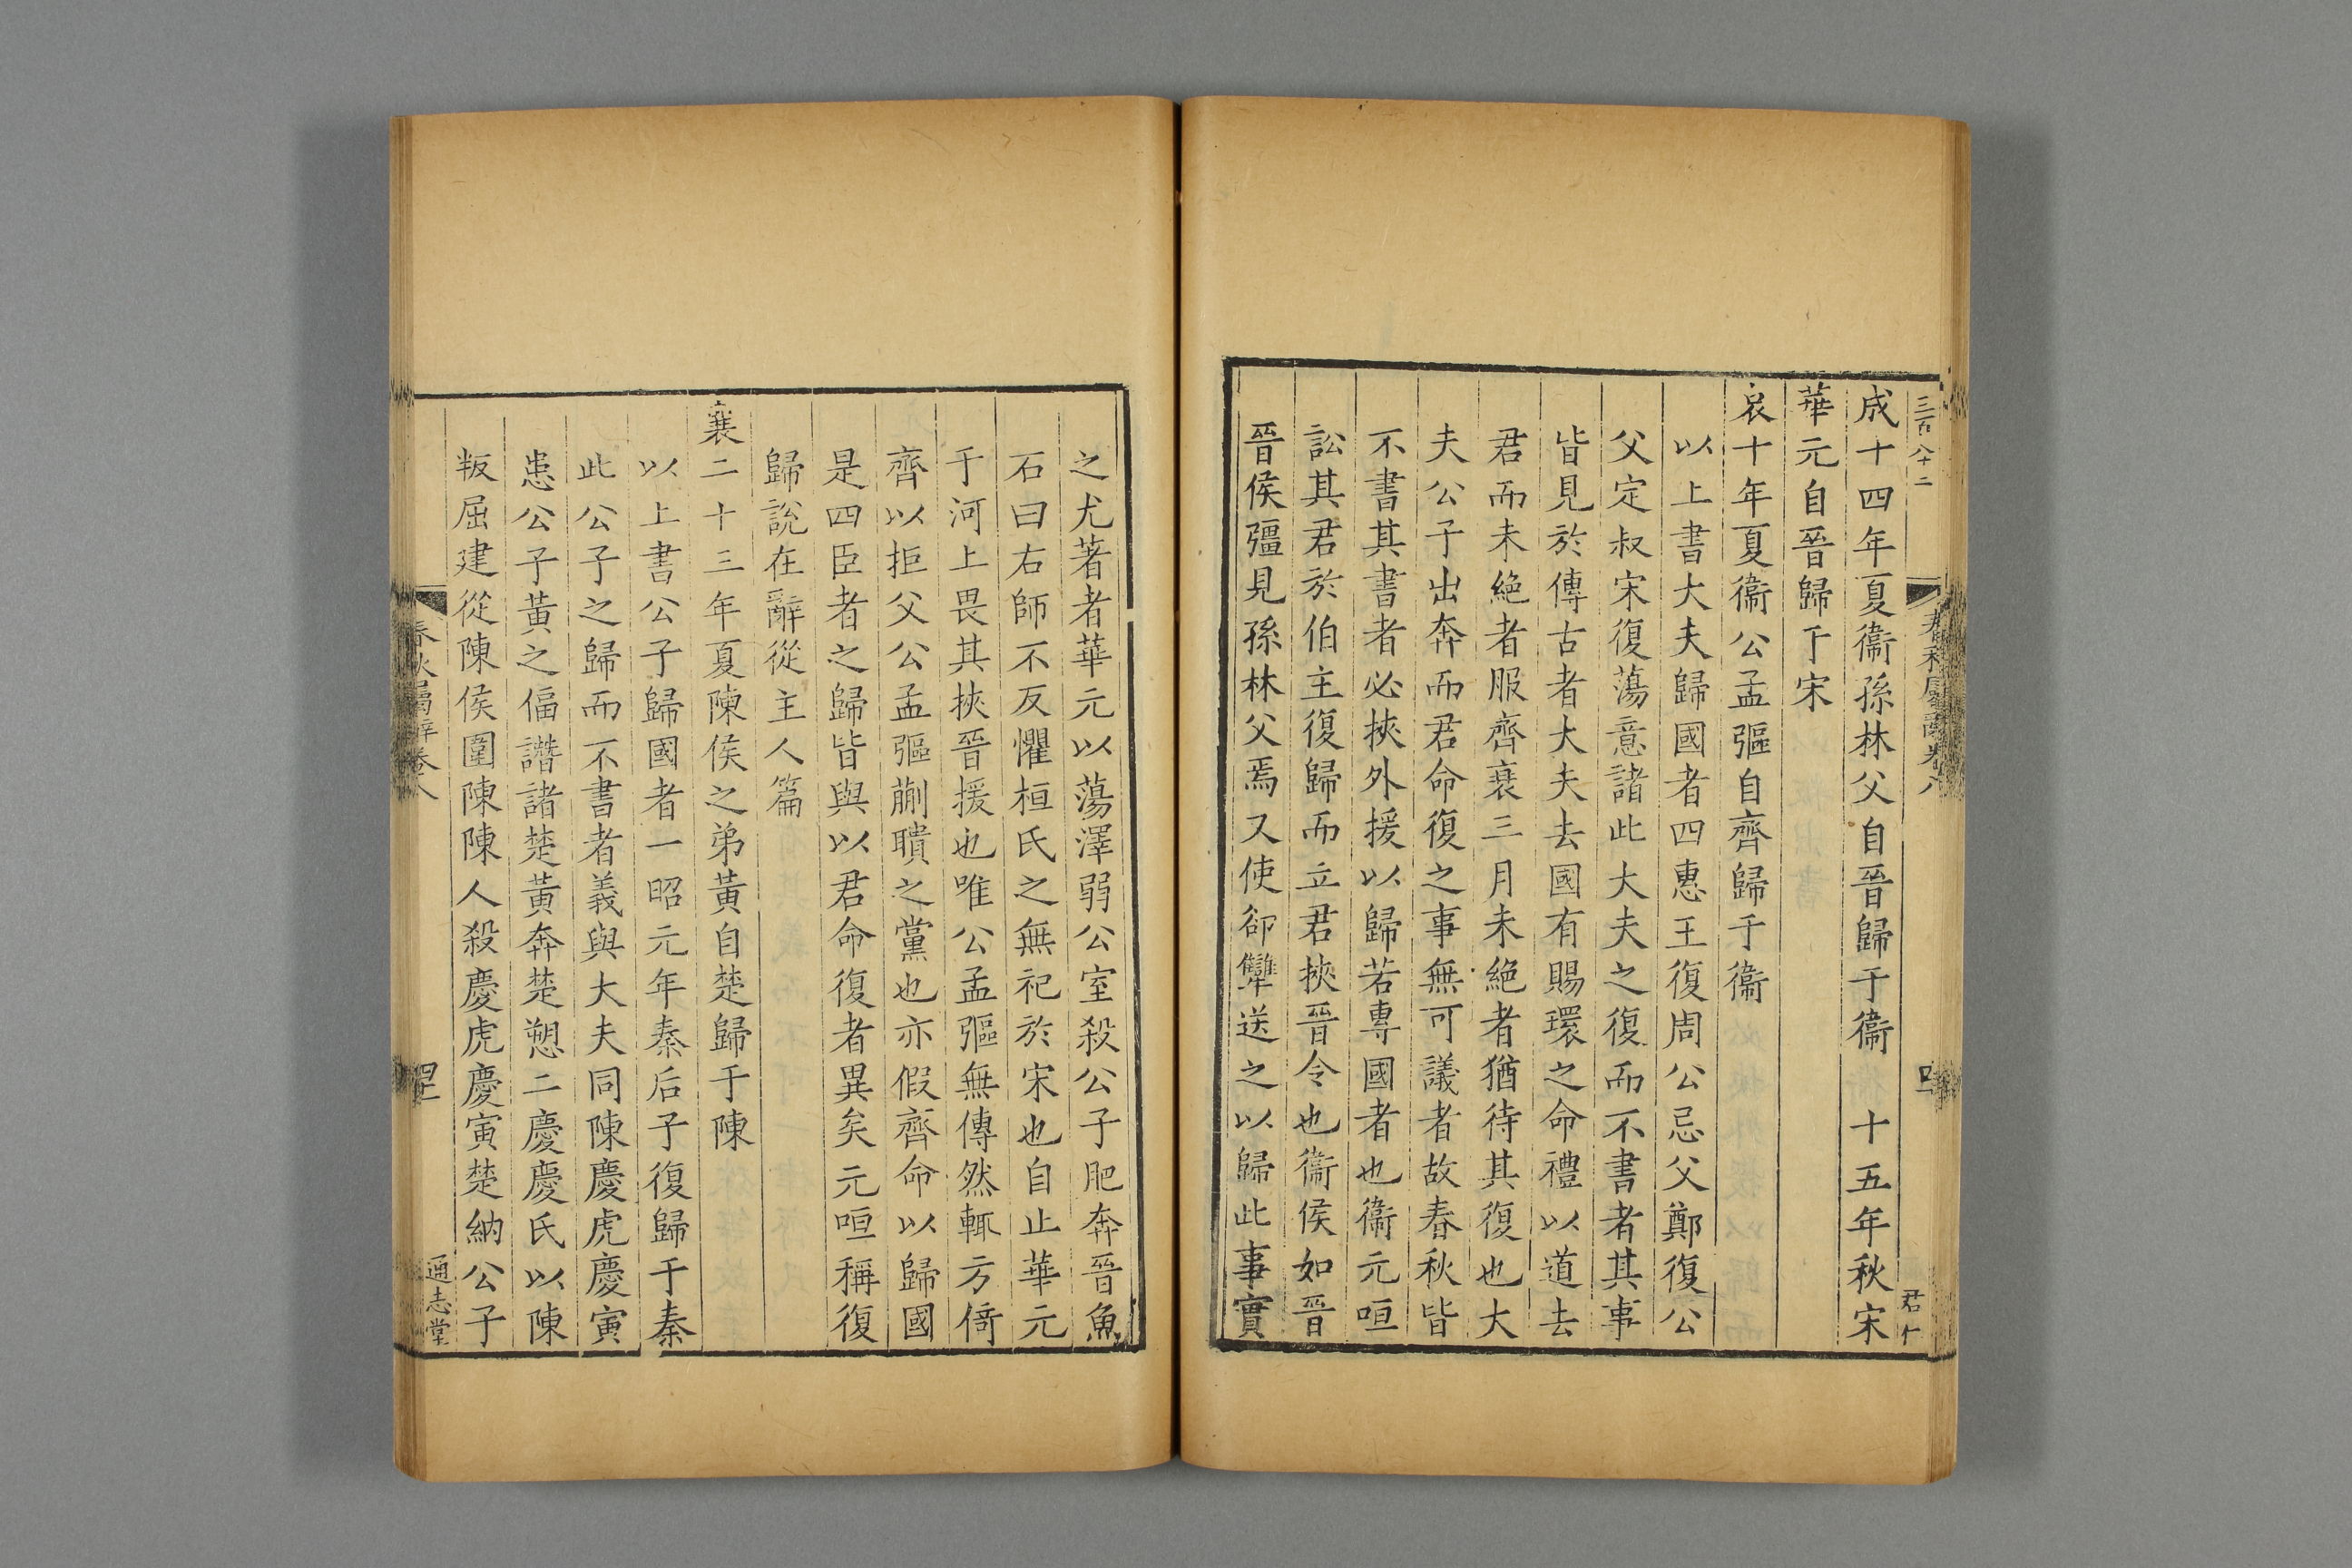 三百八十二
春秋屬辭卷八
君仁
成十四年夏衞孫林父自晉歸于衞 十五年秋宋
華元自晉歸于宋
哀十年夏衞公孟彄自齊歸于衞
以上書大夫歸國者四惠王復周公忌父鄭復公
父定叔宋復蕩意諸此大夫之復而不書者其事
皆見於傳古者大夫去國有賜環之命禮以道去
君而未絶者服齊衰三月未絶者猶待其復也大
夫公子出奔而君命復之事無可議者故春秋皆
不書其書者必挾外援以歸若專國者也衞元咺
訟其君於伯主復歸而立君挾晉令也衞侯如晉
晉侯彊見孫林父焉又使郤犫送之以歸此事實
之尤著者華元以蕩澤弱公室殺公子肥奔晉魚
石曰右師不反懼桓氏之無祀於宋也自止華元
于河上畏其挾晉援也唯公孟彄無傳然輒方倚
齊以拒父公孟彄蒯聵之黨也亦假齊命以歸國
是四臣者之歸皆與以君命復者異矣元咺稱復
歸說在辭從主人篇
襄二十三年夏陳侯之弟黃自楚歸于陳
以上書公子歸國者一昭元年秦后子復歸于秦
此公子之歸而不書者義與大夫同陳慶虎慶寅
患公子黃之偪譖諸楚黃奔楚愬二慶慶氏以陳
叛屈建從陳侯圍陳陳人殺慶虎慶寅楚納公子
春秋屬辭卷八
通志堂